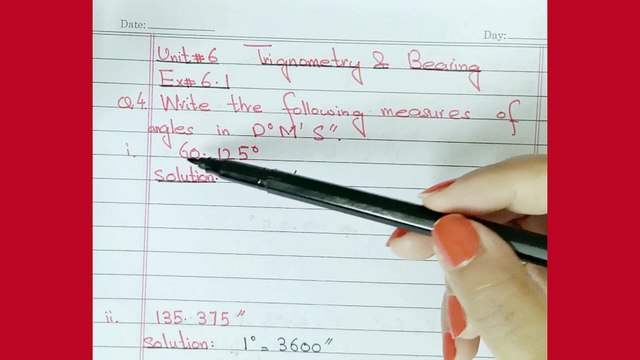 Date:
Day:
Unit#6 Trignometry & Bearing
Ex#6.1
Q4. Write the following measures of
angles in D°M'S".
i. 60.125°
Solution:
ii. 135.375"
Solution: 1° = 3600"